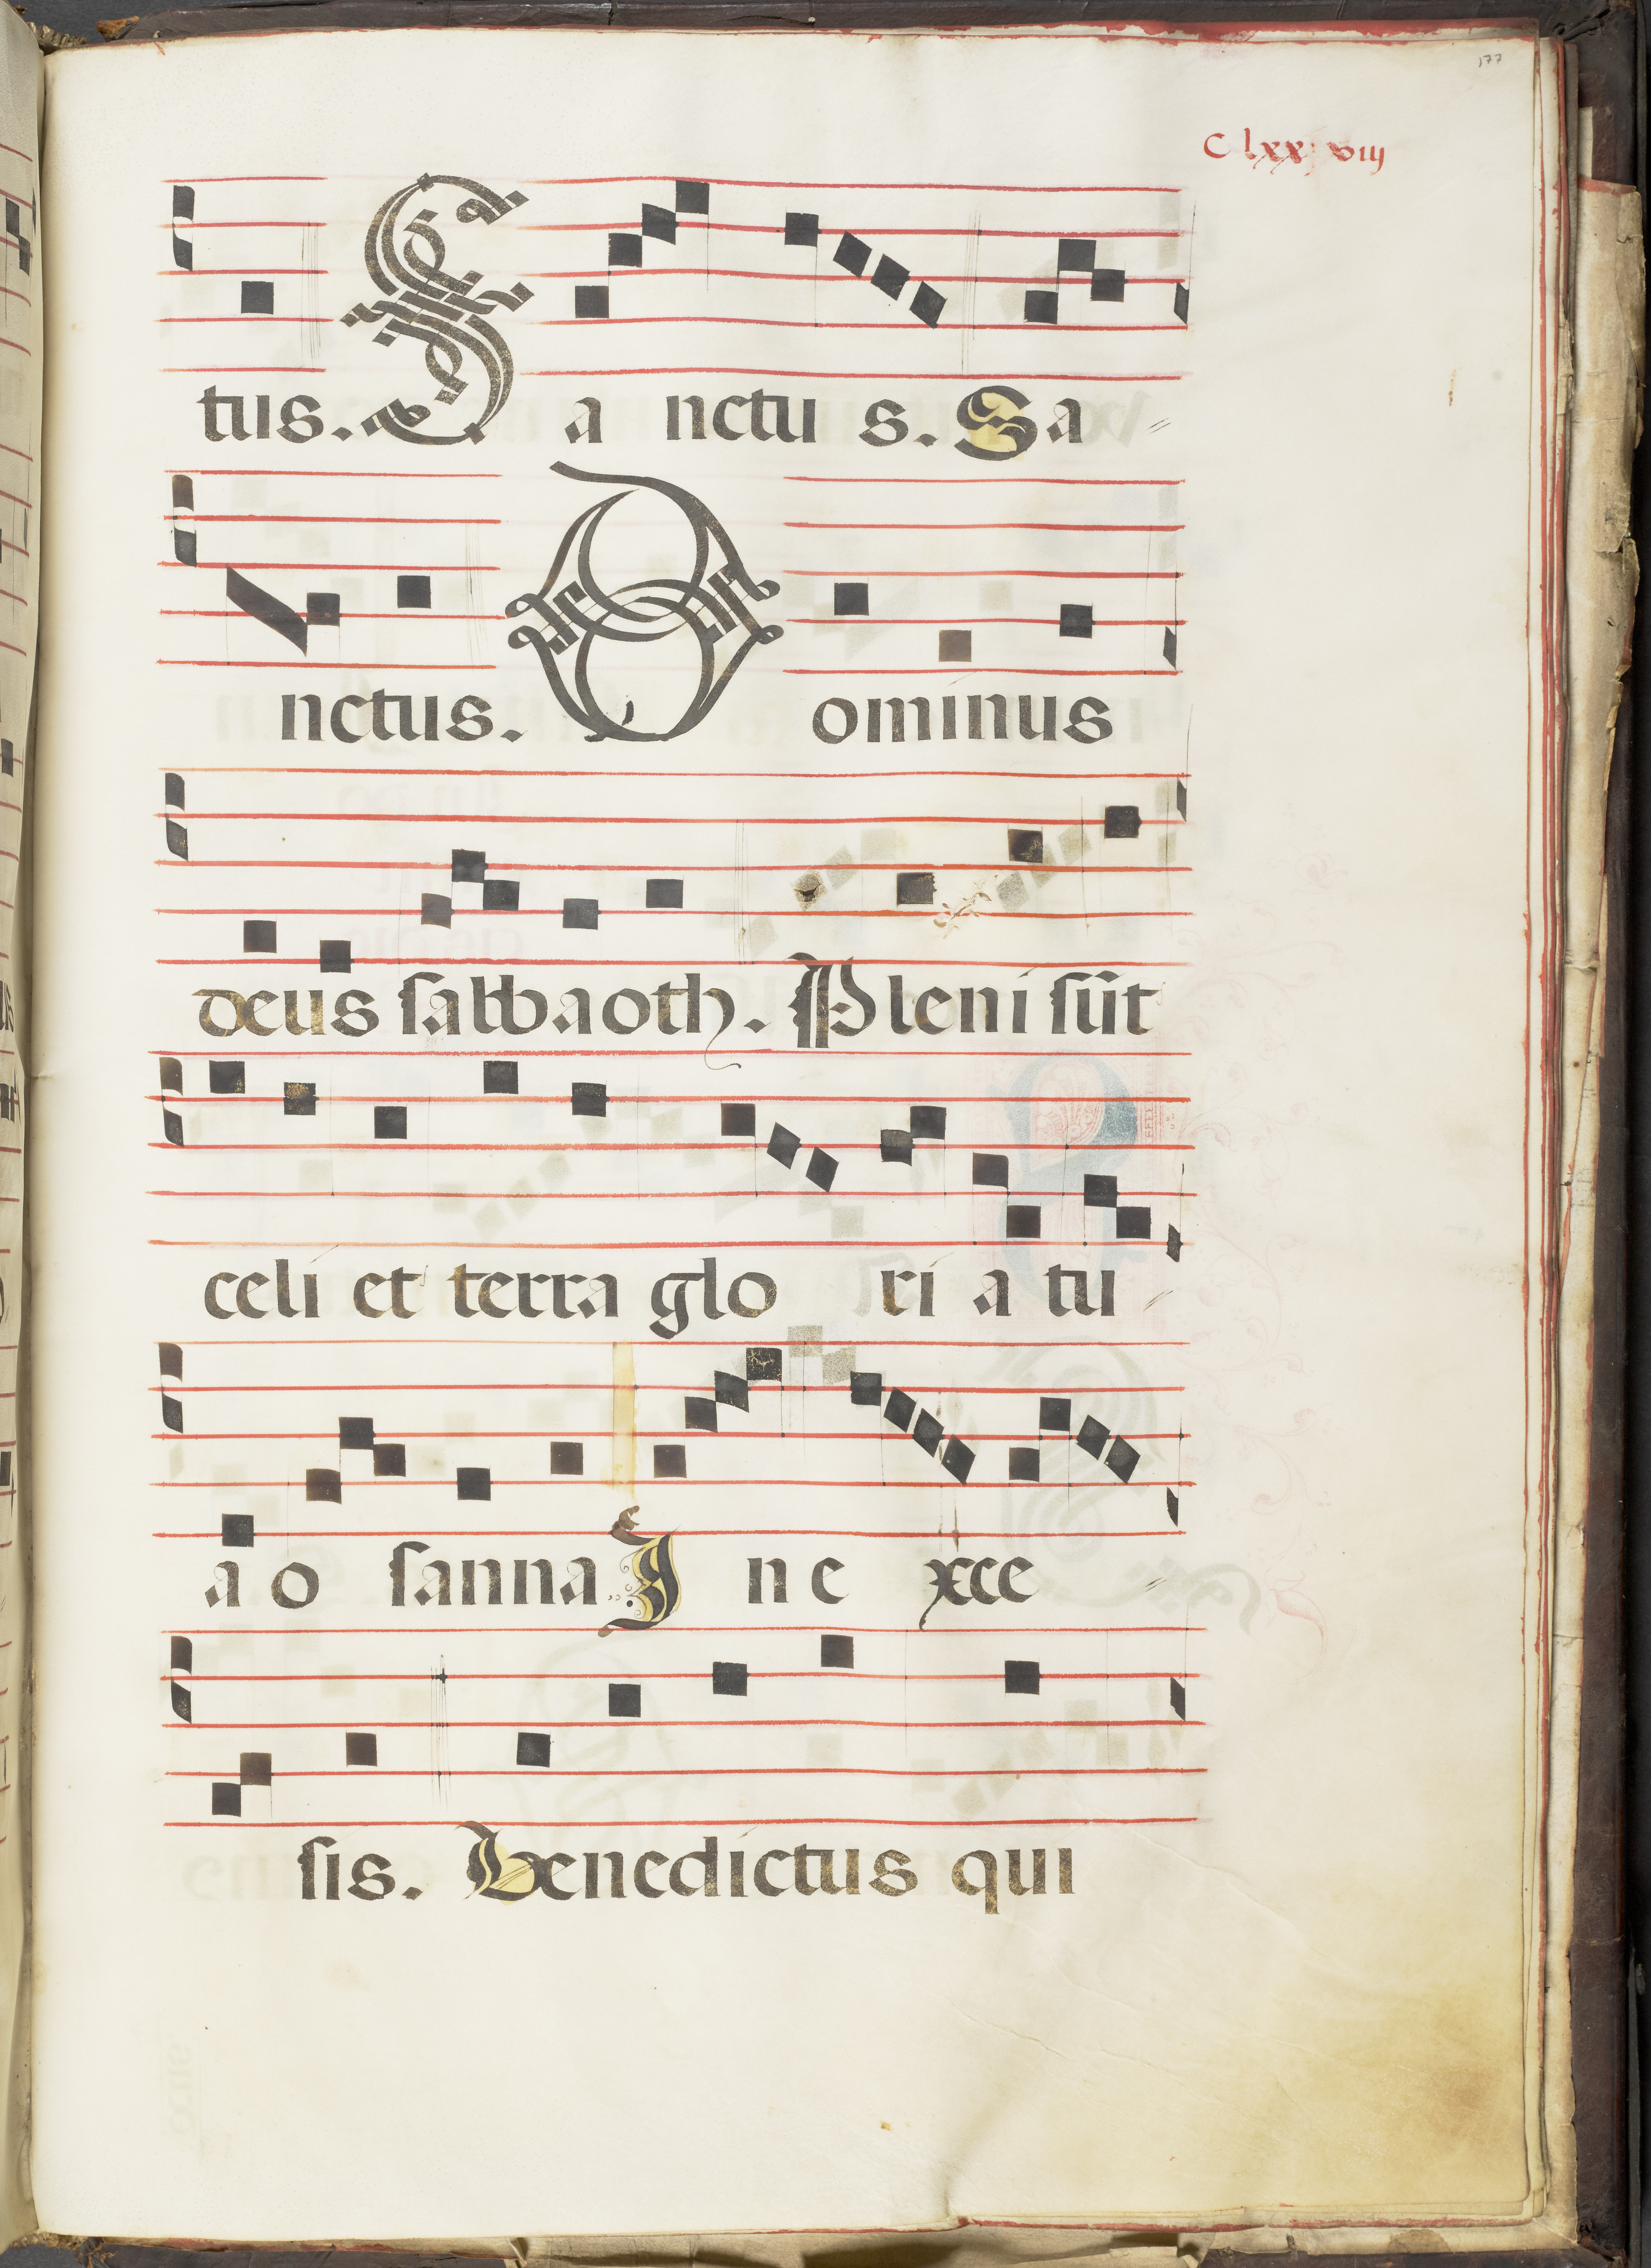 177
C lxx viij
tus. S a nctu s. Sa
nctus. D ominus
deus sabbaoth. Pleni sūt
celi et terra glo ri a tu
a o sanna I n e xce
sis. Benedictus qui